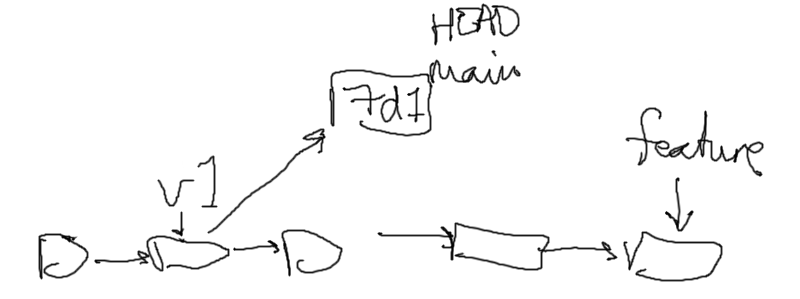 HEAD
main
7d1
feature
v1